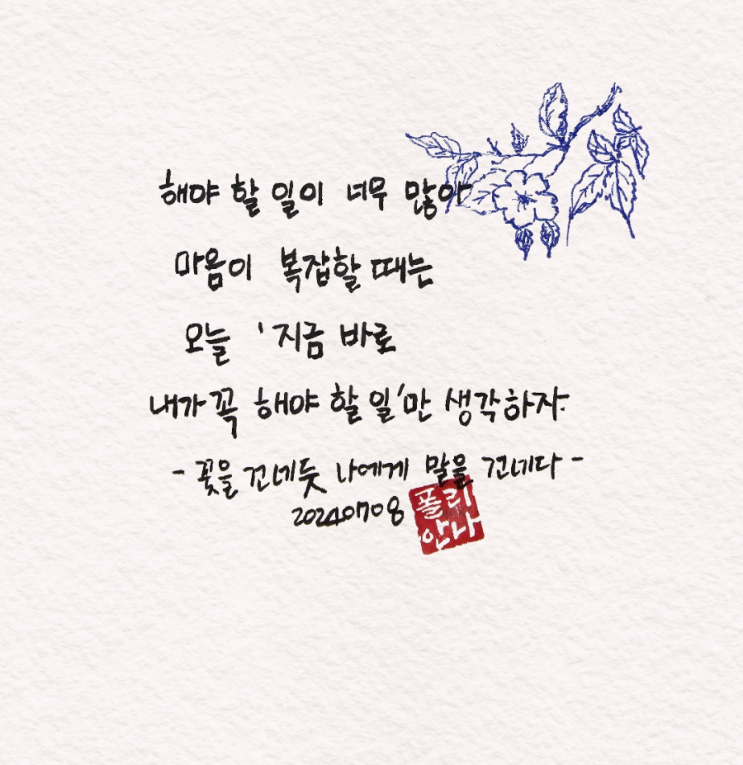 해야 할 일이 너무 많아
마음이 복잡할 때는
오늘 '지금 바로
내가 꼭 해야 할 일'만 생각하자.
- 꽃을 건네듯 나에게 말을 건네다 -
20240708
폴리
안나